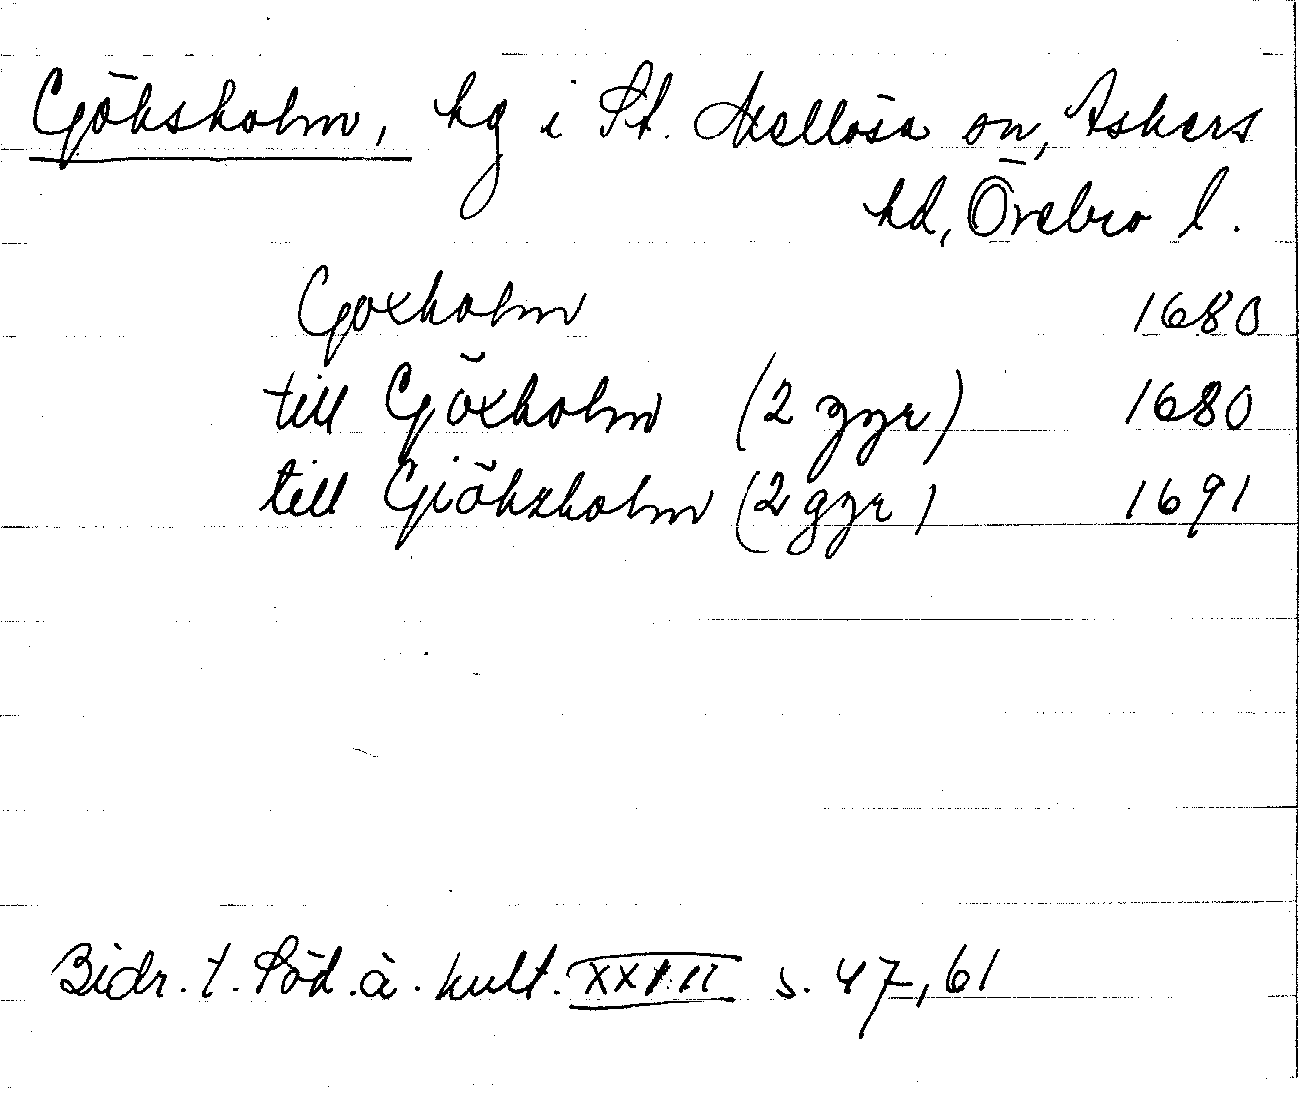 Göksholm, hg i St. Mellösa sn, Askers
hd, Örebro l.
Goxholm 1680
till Göxholm (2 ggr) 1680
till Giöksholm (2 ggr) 1691
Bidr. t. Söd. ä. kult. XXIII s. 47, 61